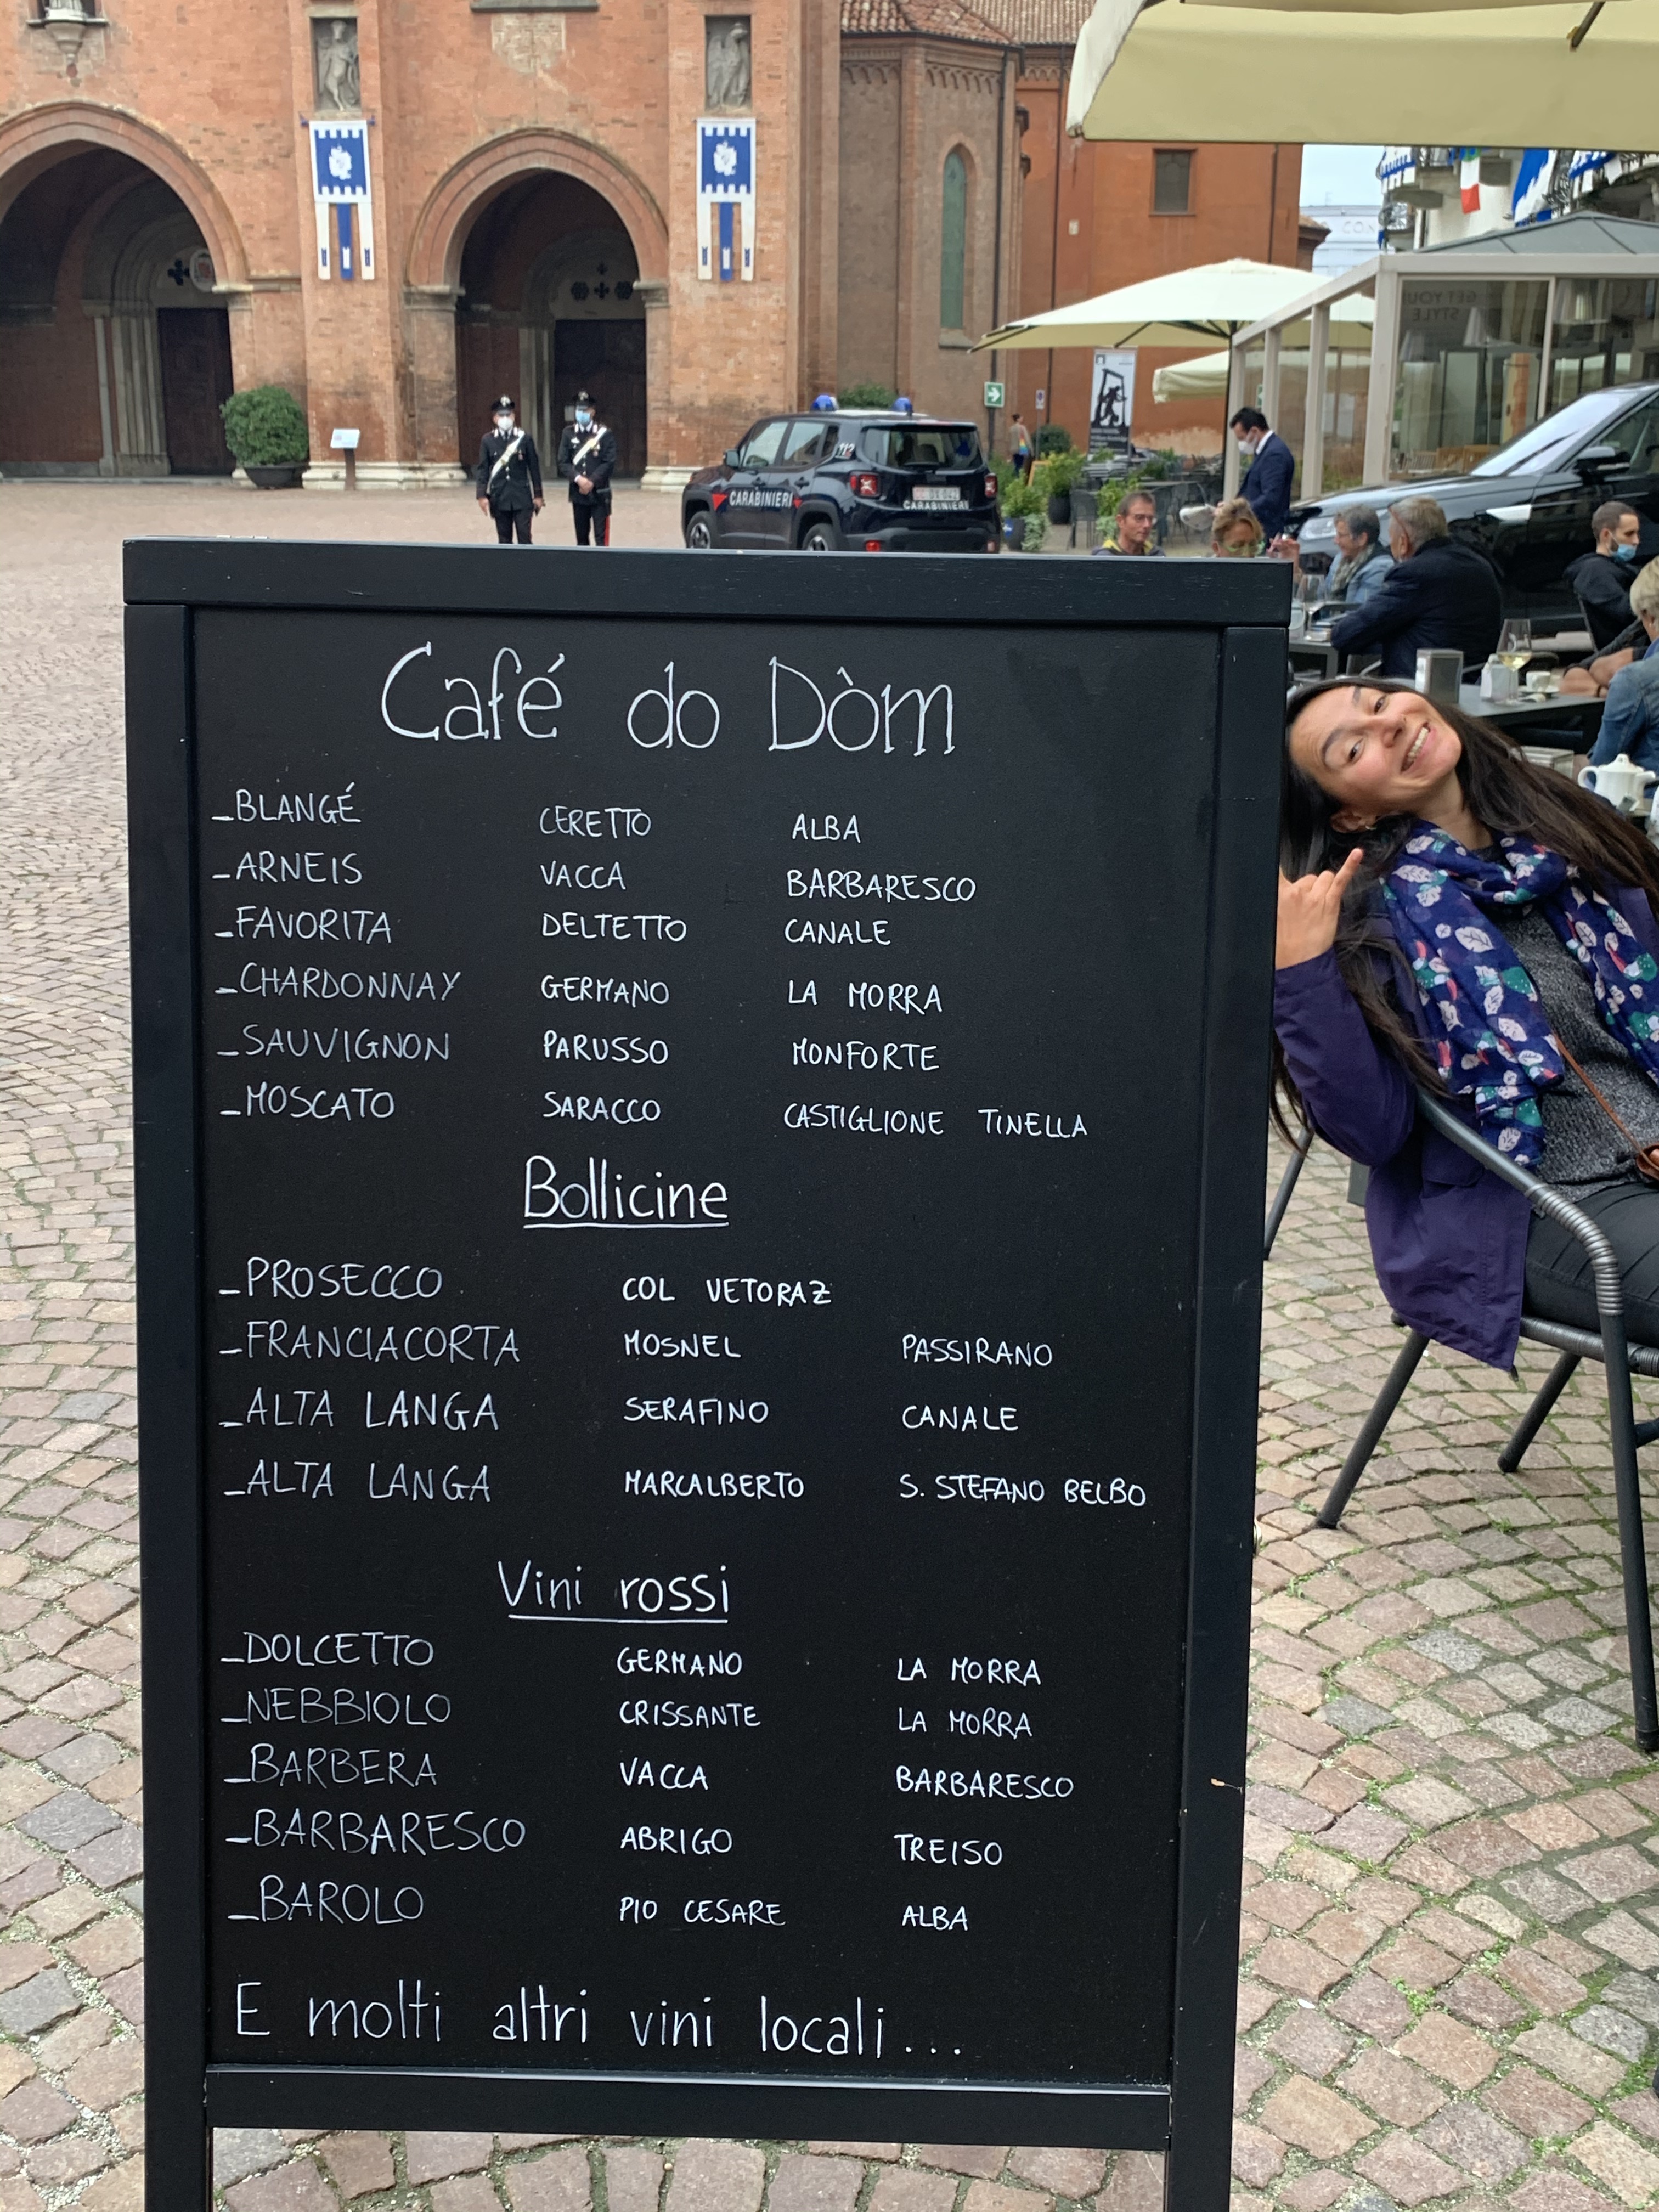 CON
GET YOUR
STYLE
112
CARABINIERI
CARABINIERI
Café do Dòm
_BLANGÉ CERETTO ALBA
_ARNEIS VACCA BARBARESCO
_FAVORITA DELTETTO CANALE
_CHARDONNAY GERMANO LA MORRA
_SAUVIGNON PARUSSO MONFORTE
_MOSCATO SARACCO CASTIGLIONE TINELLA
Bollicine
_PROSECCO COL VETORAZ
_FRANCIACORTA MOSNEL PASSIRANO
_ALTA LANGA SERAFINO CANALE
_ALTA LANGA MARCALBERTO S. STEFANO BELBO
Vini rossi
_DOLCETTO GERMANO LA MORRA
_NEBBIOLO CRISSANTE LA MORRA
_BARBERA VACCA BARBARESCO
_BARBARESCO ABRIGO TREISO
_BAROLO PIO CESARE ALBA
E molti altri vini locali...